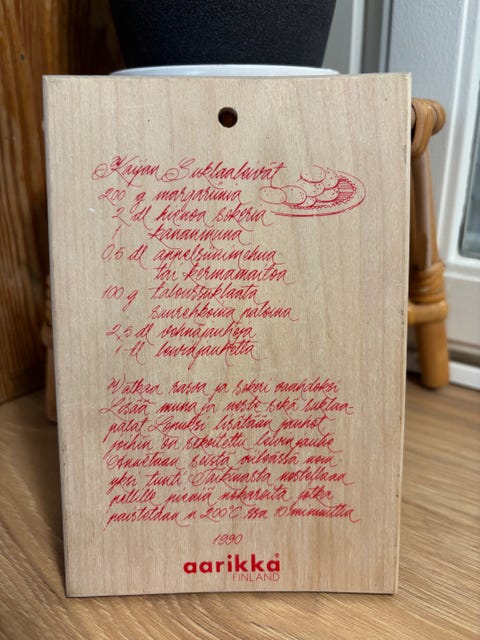 Kaijan Suklaaleivät
200 g margariinia
2 dl hienoa sokeria
1 kananmuna
0,5 dl appelsiinimehua
tai kermamaitoa
100 g taloussuklaata
suurehkoina paloina
2,5 dl vehnäjauhoja
1 tl leivinjauhetta
Vatkaa rasva ja sokeri vaahdoksi
Lisää muna ja neste sekä suklaa-
palat Lopuksi lisätään jauhot
joihin on sekoitettu leivinjauhe
Annetaan seistä viileässä noin
yksi tunti Taikinasta nostellaan
pellille pieniä nokareita jotka
paistetaan n 200°C ssa 10 minuuttia
1990
aarikka
FINLAND